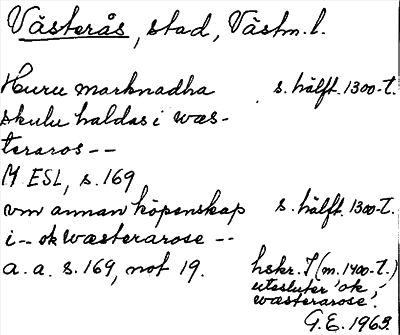 Västerås, stad, Västm. l.
Huru marknadha s. hälft. 1300-t.
skulu haldas i wæs-
teraros --
M ESL, s. 169
vm annan köpenskap s. hälft. 1300-t.
i -- ok wæsterarose --
a. a. s. 169, not 19. hskr. I (m. 1400-t.)
utesluter 'ok,-
wæsterarose'.
G.E. 1963.